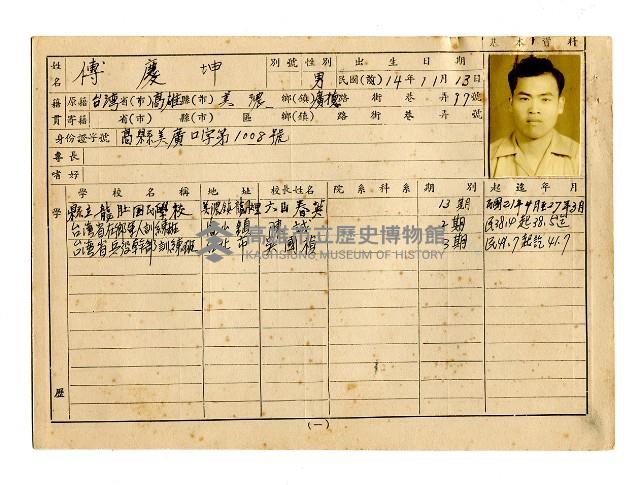 基本資料
姓名 傅慶坤 別號 性別 男 出生日期 民國(前)14年11月13日
籍貫 原籍 台灣省(市)高雄縣(市)美濃鄉(鎮)廣德路 街 巷 弄97號
寄籍 省(市) 縣(市) 區 鄉(鎮) 路 街 巷 弄 號
身份證字號 高縣美廣口字第1008號
專長
嗜好
學歷
學校名稱 地址 校長姓名 院系科系 期別 起迄年月
縣立龍肚國民學校 美濃鎮龍肚里 大山春 13期 民國21年4月至27年3月
台灣省在鄉軍人訓練班 期 民38.4起38.5迄
台灣省兵役幹部訓練班 市 吳國楨 3期 民41.7起訖41.7
高雄市立歷史博物館
KAOHSIUNG MUSEUM OF HISTORY
(一)